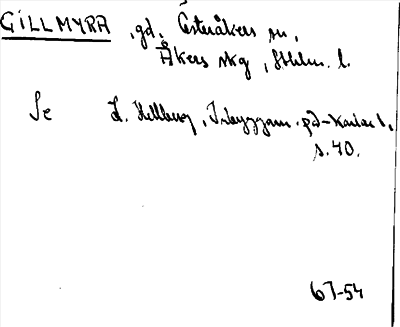 GILLMYRA, gd, Österåkers sn,
Åkers skg, Sthlm. l.
Se L. Hellberg, Inbyggarn. på -karlar 1,
s. 40.
67-54